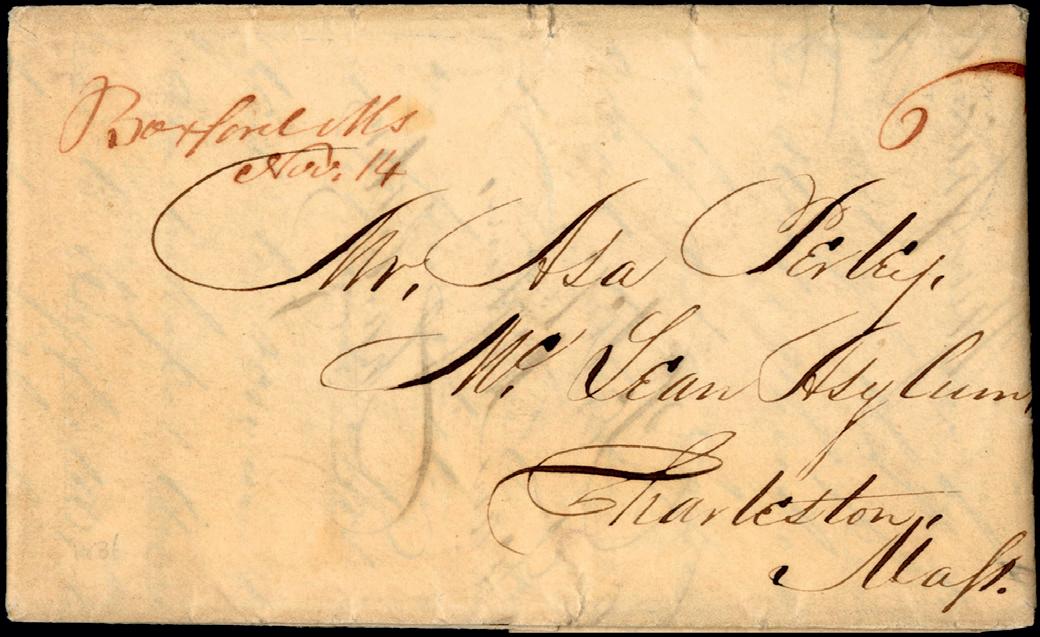 Boxford Ms
Nov. 14
6
Mr, Asa Perley.
Mc Lean Asylum,
Charleston,
Mass.
1836